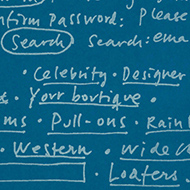 nfirm Password: Please
Search Search: ema
· Celebrity · Designer
· Your boutique ·
ms · Pull-ons · Rain
· Western · Wide C
Loafers